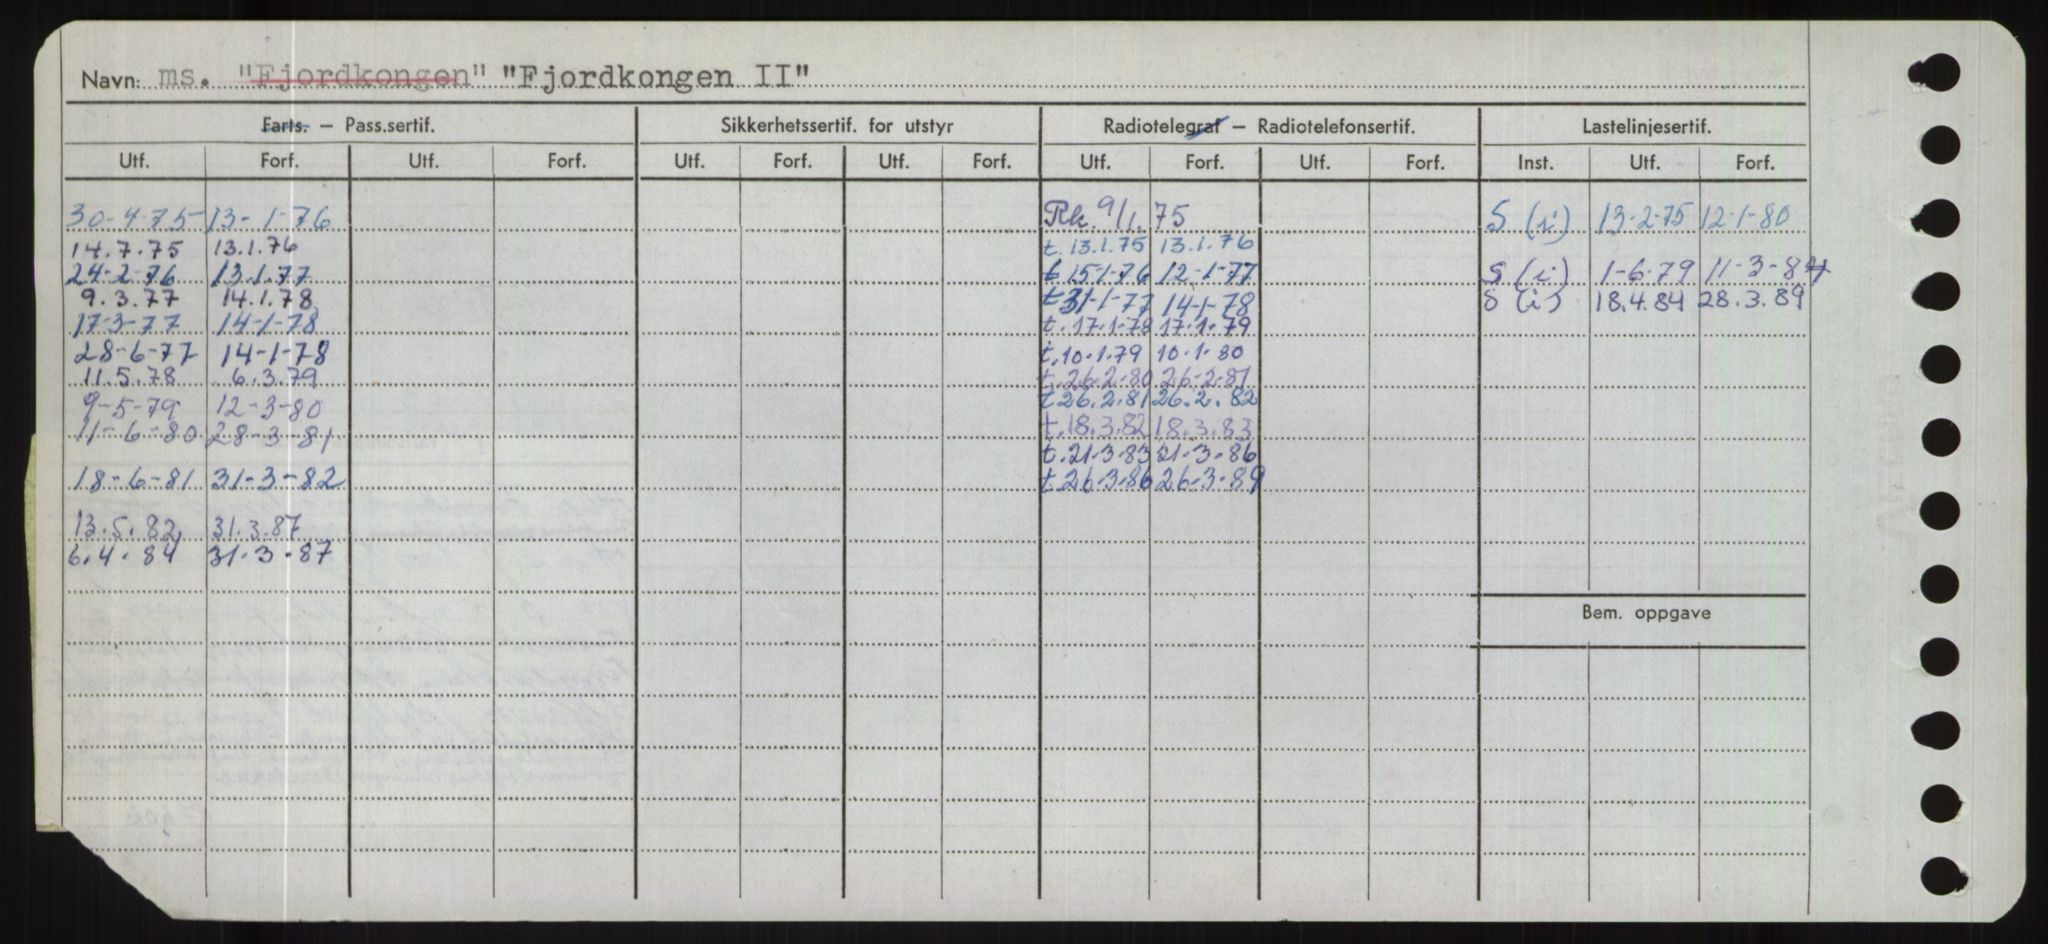 Navn: ms. "Fjordkongen" "Fjordkongen II"
Farts. – Pass.sertif. Sikkerhetssertif. for utstyr Radiotelegraf – Radiotelefonsertif. Lastelinjesertif.
Utf. Forf. Utf. Forf. Utf. Forf. Utf. Forf. Utf. Forf. Utf. Forf. Inst. Utf. Forf.
30-4-75 13-1-76 Rk. 9/1.75 S (i) 13-2-75 12-1-80
14.7.75 13.1.76 t. 13.1.75 13.1.76
24-2-76 13.1.77 t 15-1-76 12-1-77 S (i) 1-6-79 11-3-84
9.3.77 14.1.78 t 31-1-77 14-1-78 S (i) 18.4.84 28.3.89
17-3-77 14-1-78 t. 17.1-78 17.1.79
28-6-77 14-1-78 t. 10.1.79 10.1.80
11.5.78 6.3.79 t. 26.2.80 26.2.81
9-5-79 12-3-80 t 26.2.81 26.2.82
11-6-80 28-3-81 t. 18.3.82 18.3.83
t. 21-3-83 21-3-86
18-6-81 31-3-82 t 26-3-86 26-3-89
13.5.82 31.3.87
6.4.84 31.3.87
Bem. oppgave